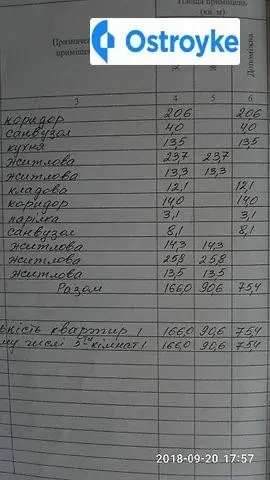 Площа приміщень
(кв. м)
Ostroyke
Признач
приміщен
Допоміжна
3 4 5 6
коридор 20,6 20,6
санвузол 4,0 4,0
кухня 13,5 13,5
житлова 23,7 23,7
житлова 13,3 13,3
кладова 12,1 12,1
коридор 14,0 14,0
парілка 3,1 3,1
санвузол 8,1 8,1
житлова 14,3 14,3
житлова 25,8 25,8
житлова 13,5 13,5
Разом 166,0 90,6 75,4
ькість квартир 1 166,0 90,6 75,4
му числі 5ти кімнат 1 166,0 90,6 75,4
2018-09-20 17:57